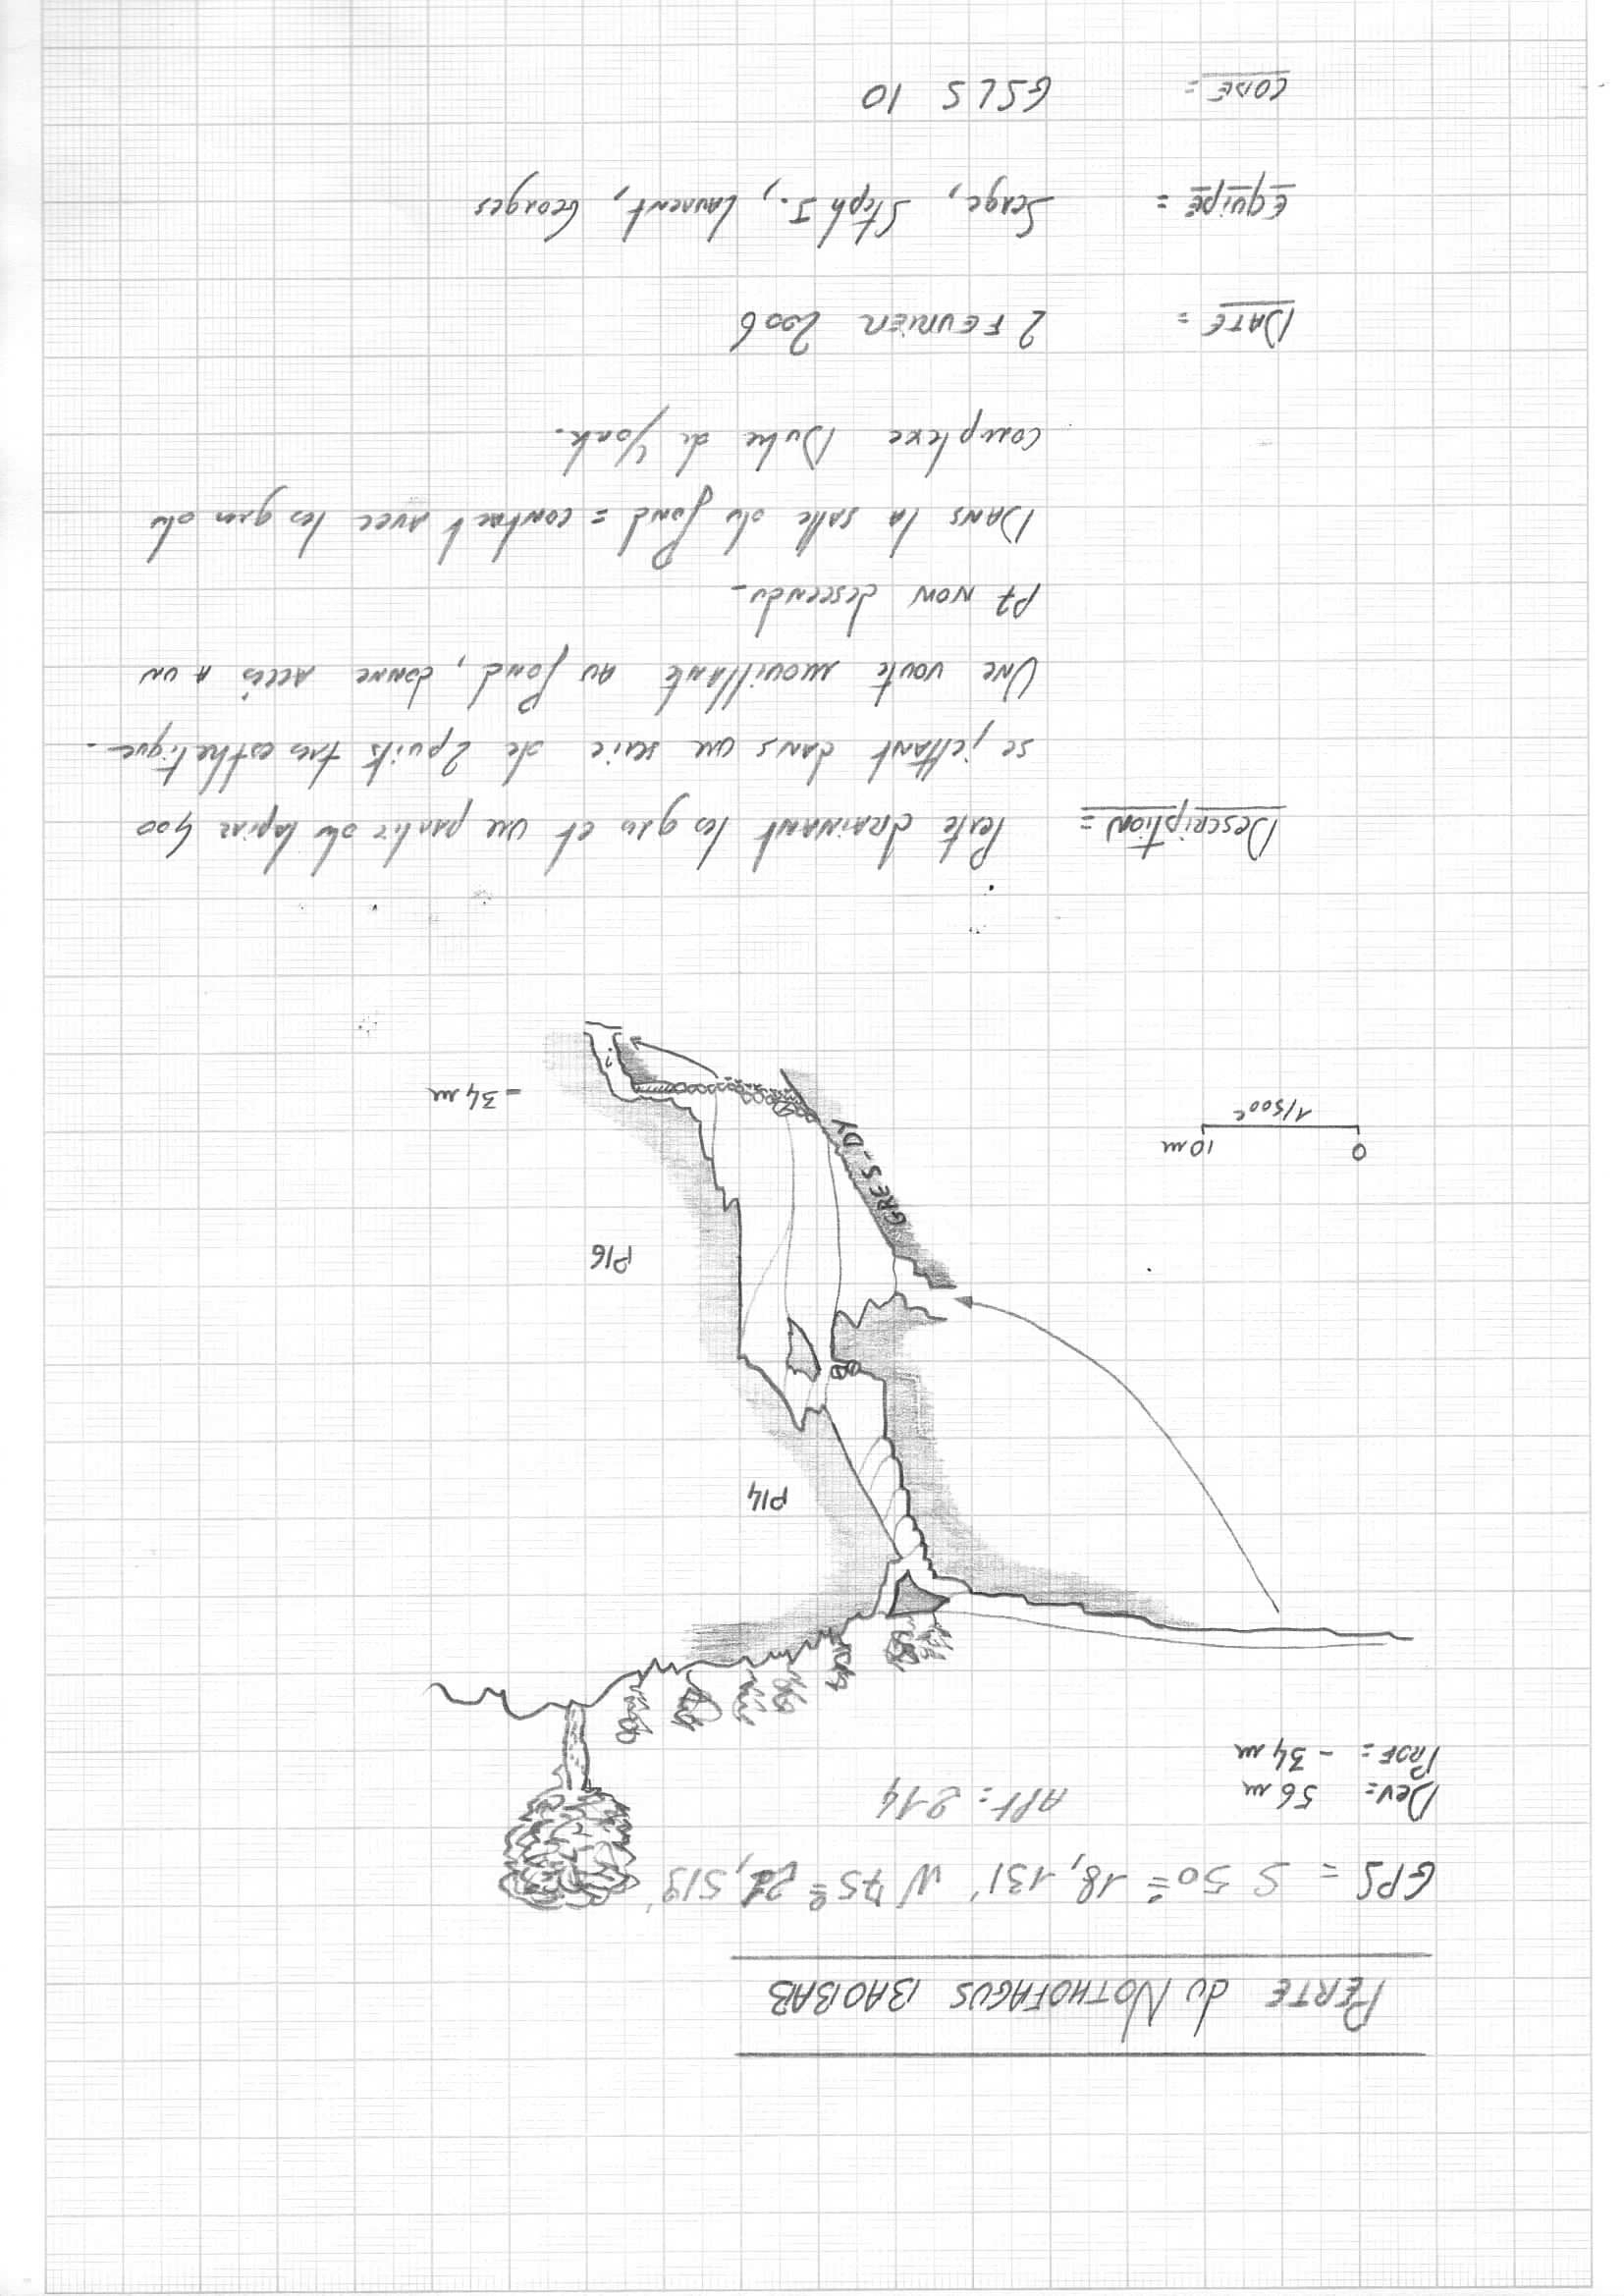 PERTE du NOTHOFAGUS BAOBAB
GPS = S 50° 18,131' W 75° 21,519'
Dev = 56 m
Alt = 214
Prof = - 34 m
P14
P16
GRES - DY
0 10 m
1/500e
?
= 34 m
Description = Perte drainant les gres et une partie du lapiaz 400
se jettant dans une serie de 2 puits tres esthetique -
Une voute mouillante au fond, donne accès a un
P7 non descendu -
Dans la salle du fond = contact avec les gres du
complexe Duke de York.
DATE = 2 FEVRIER 2006
Equipe = Serge, Steph J., Laurent, Georges
CODE = GSLS 10